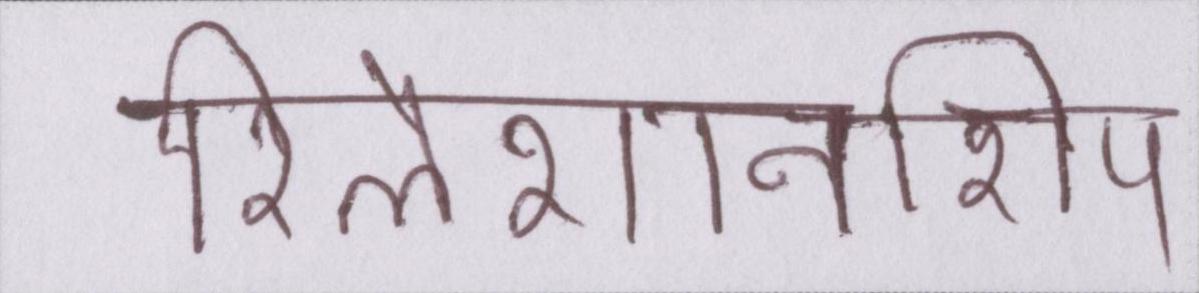 रिलेशानशिप